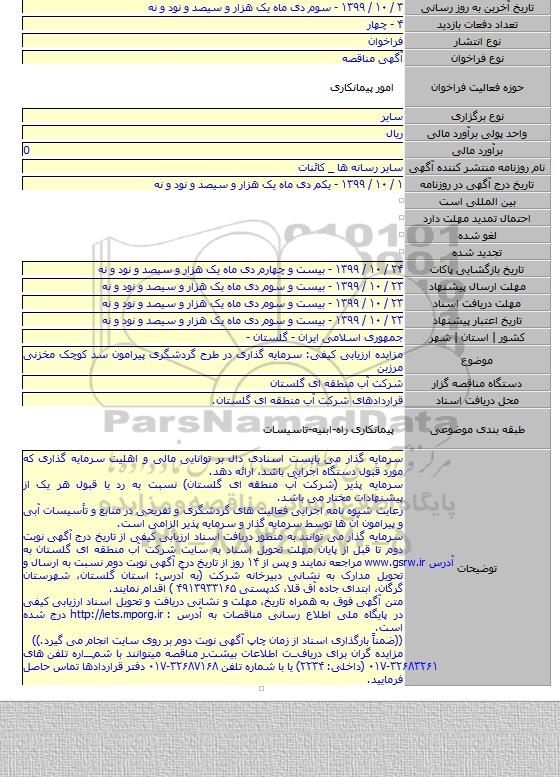 تاریخ آخرین به روز رسانی ۳ / ۱۰ / ۱۳۹۹ - سوم دی ماه یک هزار و سیصد و نود و نه
تعداد دفعات بازدید ۴ - چهار
نوع انتشار فراخوان
نوع فراخوان آگهی مناقصه
حوزه فعالیت فراخوان امور پیمانکاری
نوع برگزاری سایر
واحد پولی برآورد مالی ریال
برآورد مالی 0
نام روزنامه منتشر کننده آگهی سایر رسانه ها _ کائنات
تاریخ درج آگهی در روزنامه ۱ / ۱۰ / ۱۳۹۹ - یکم دی ماه یک هزار و سیصد و نود و نه
بین المللی است
احتمال تمدید مهلت دارد
لغو شده
تجدید شده
تاریخ بازگشایی پاکات ۲۴ / ۱۰ / ۱۳۹۹ - بیست و چهارم دی ماه یک هزار و سیصد و نود و نه
مهلت ارسال پیشنهاد ۲۳ / ۱۰ / ۱۳۹۹ - بیست و سوم دی ماه یک هزار و سیصد و نود و نه
مهلت دریافت اسناد ۲۳ / ۱۰ / ۱۳۹۹ - بیست و سوم دی ماه یک هزار و سیصد و نود و نه
تاریخ اعتبار پیشنهاد ۲۳ / ۱۰ / ۱۳۹۹ - بیست و سوم دی ماه یک هزار و سیصد و نود و نه
کشور | استان | شهر جمهوری اسلامی ایران - گلستان -
موضوع مزایده ارزیابی کیفی: سرمایه گذاری در طرح گردشگری پیرامون سد کوچک مخزنی
مرزبن
دستگاه مناقصه گزار شرکت آب منطقه ای گلستان
محل دریافت اسناد قراردادهای شرکت آب منطقه ای گلستان
طبقه بندی موضوعی پیمانکاری راه-ابنیه-تاسیسات
ParsNamadData
توضیحات
سرمایه گذار می بایست اسنادی دال بر توانایی مالی و اهلیت سرمایه گذاری که
مورد قبول دستگاه اجرایی باشد، ارائه دهد.
سرمایه پذیر (شرکت آب منطقه ای گلستان) نسبت به رد یا قبول هر یک از
پیشنهادات مختار می باشد.
رعایت شیوه نامه اجرایی فعالیت های گردشگری و تفریحی در منابع و تأسیسات آبی
و پیرامون آن ها توسط سرمایه گذار و سرمایه پذیر الزامی است.
سرمایه گذار می توانند به منظور دریافت اسناد ارزیابی کیفی از تاریخ درج آگهی نوبت
دوم تا قبل از پایان مهلت تحویل اسناد به سایت شرکت آب منطقه ای گلستان به
آدرس www.gsrw.ir مراجعه نمایند و پس از ۱۴ روز از تاریخ درج آگهی نوبت دوم نسبت به ارسال و
تحویل مدارک به نشانی دبیرخانه شرکت (به آدرس: استان گلستان، شهرستان
گرگان، ابتدای جاده آق قلا، کدپستی ۴۹۱۳۹۳۳۱۶۵ ) اقدام نمایند.
متن آگهی فوق به همراه تاریخ، مهلت و نشانی دریافت و تحویل اسناد ارزیابی کیفی
در پایگاه ملی اطلاع رسانی مناقصات به آدرس : http://iets.mporg.ir درج شده
است.
((ضمناً بارگذاری اسناد از زمان چاپ آگهی نوبت دوم بر روی سایت انجام می گیرد.))
مزایده گران برای دریافت اطلاعات بیشتر مناقصه میتوانند با شماره تلفن های
۰۱۷-۳۲۶۸۳۲۶۱ (داخلی: ۲۲۳۴) یا با شماره تلفن ۳۲۶۸۷۱۶۸-۰۱۷ دفتر قراردادها تماس حاصل
فرمایید.